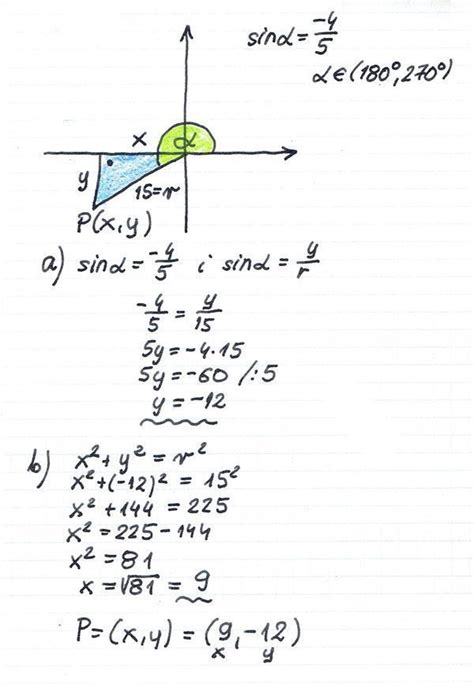 sinα = -4/5
α ∈ (180°, 270°)
α
x
y
15=r
P(x,y)
a) sinα = -4/5 i sinα = y/r
-4/5 = y/15
5y = -4·15
5y = -60 /:5
y = -12
b) x² + y² = r²
x² + (-12)² = 15²
x² + 144 = 225
x² = 225 - 144
x² = 81
x = √81 = 9
P = (x,y) = (9, -12)
x y